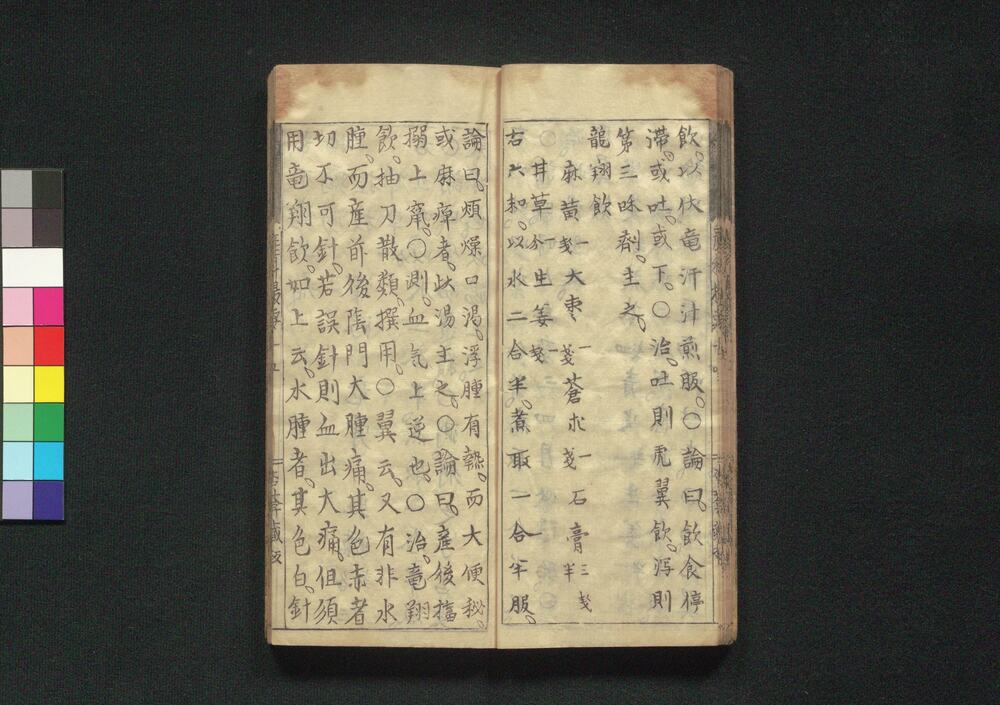 飲。以伏竜汗汁煎服。〇論曰。飲食停
滞。或吐。或下。〇治。吐則虎翼飲。瀉則
第三味劑。主之。
龍翔飲
麻黄 一戔 大枣 一戔 蒼朮 一戔 石膏 三戔半
甘草 一分 生姜 一戔
右六和。以水二合半。煮取一合半服。
論曰。煩燥口渇。浮腫有熱。而大便秘。
或麻痺者。此湯主之。〇論曰。産後搐
搦上竄。〇測。血気上逆也。〇治。竜翔
飲。抽刀散類。撰用。〇翼云。又有非水
腫。而産前後陰門大腫痛。其色赤者
切不可針。若誤針則血出大痛。但須
用竜翔飲。如上云。水腫者。其色白。針